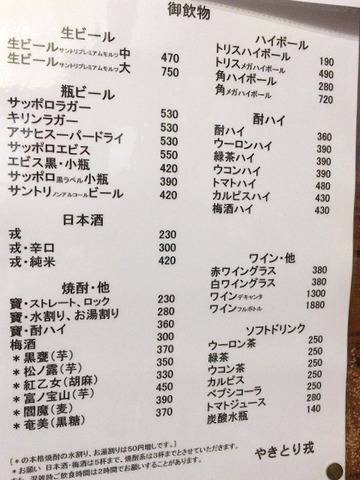 御飲物
生ビール
生ビールサントリプレミアムモルツ中 470
生ビールサントリプレミアムモルツ大 750
瓶ビール
サッポロラガー 530
キリンラガー 530
アサヒスーパードライ 530
サッポロエビス 550
エビス黒・小瓶 420
サッポロ黒ラベル小瓶 390
サントリノンアルコールビール 420
日本酒
戎 230
戎・辛口 300
戎・純米 420
焼酎・他
寶・ストレート、ロック 230
寶・水割り、お湯割り 280
寶・酎ハイ 360
梅酒 300
*黒甕(芋) 370
*松ノ露(芋) 350
*紅乙女(胡麻) 440
*富ノ宝山(芋) 450
*閻魔(麦) 370
*奄美(黒糖) 370
ハイボール
トリスハイボール 190
トリスメガハイボール 490
角ハイボール 280
角メガハイボール 720
酎ハイ
酎ハイ 360
ウーロンハイ 390
緑茶ハイ 390
ウコンハイ 390
トマトハイ 480
カルピスハイ 430
梅酒ハイ 430
ワイン・他
赤ワイングラス 380
白ワイングラス 380
ワインデキャンタ 1300
ワインフルボトル 1880
ソフトドリンク
ウーロン茶 250
緑茶 250
ウコン茶 250
カルピス 250
ペプシコーラ 250
トマトジュース 250
炭酸水瓶 140
[*の本格焼酎の水割り、お湯割りは50円増しです。]
*お願い 日本酒・梅酒は5杯まで、焼酎系は3杯までとさせていただきます。
また混雑時ご飲食時間は2時間でお願いすることがあります。
やきとり戎